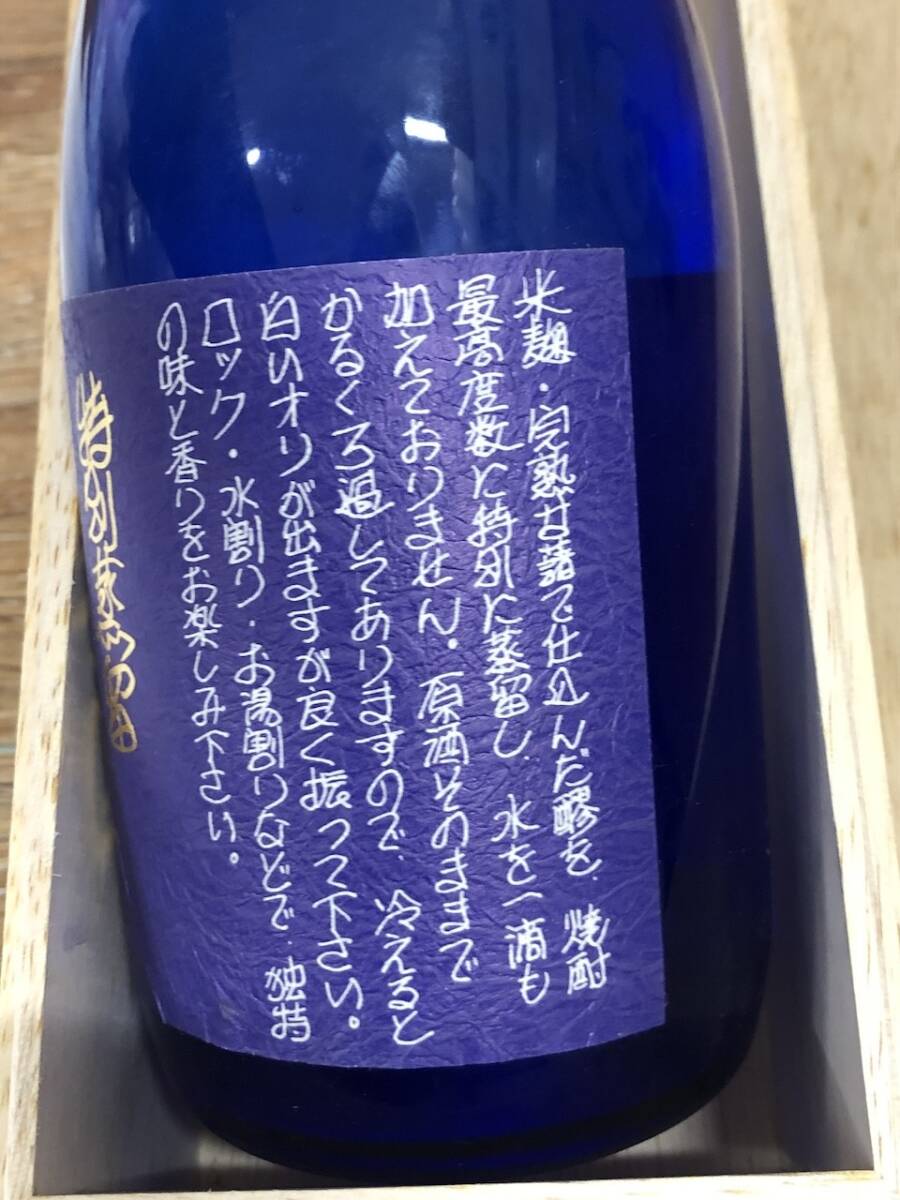 米麹・完熟甘藷で仕込んだ醪を、焼酎
最高度数に特別に蒸留し、水を一滴も
加えておりません。原酒そのままで
かるくろ過してありますので、冷えると
白いオリが出ますが良く振って下さい。
ロック・水割り・お湯割りなどで、独特
の味と香りをお楽しみ下さい。
特別蒸留